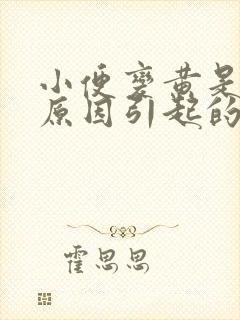 小便变黄是
原因引起的
霍思思